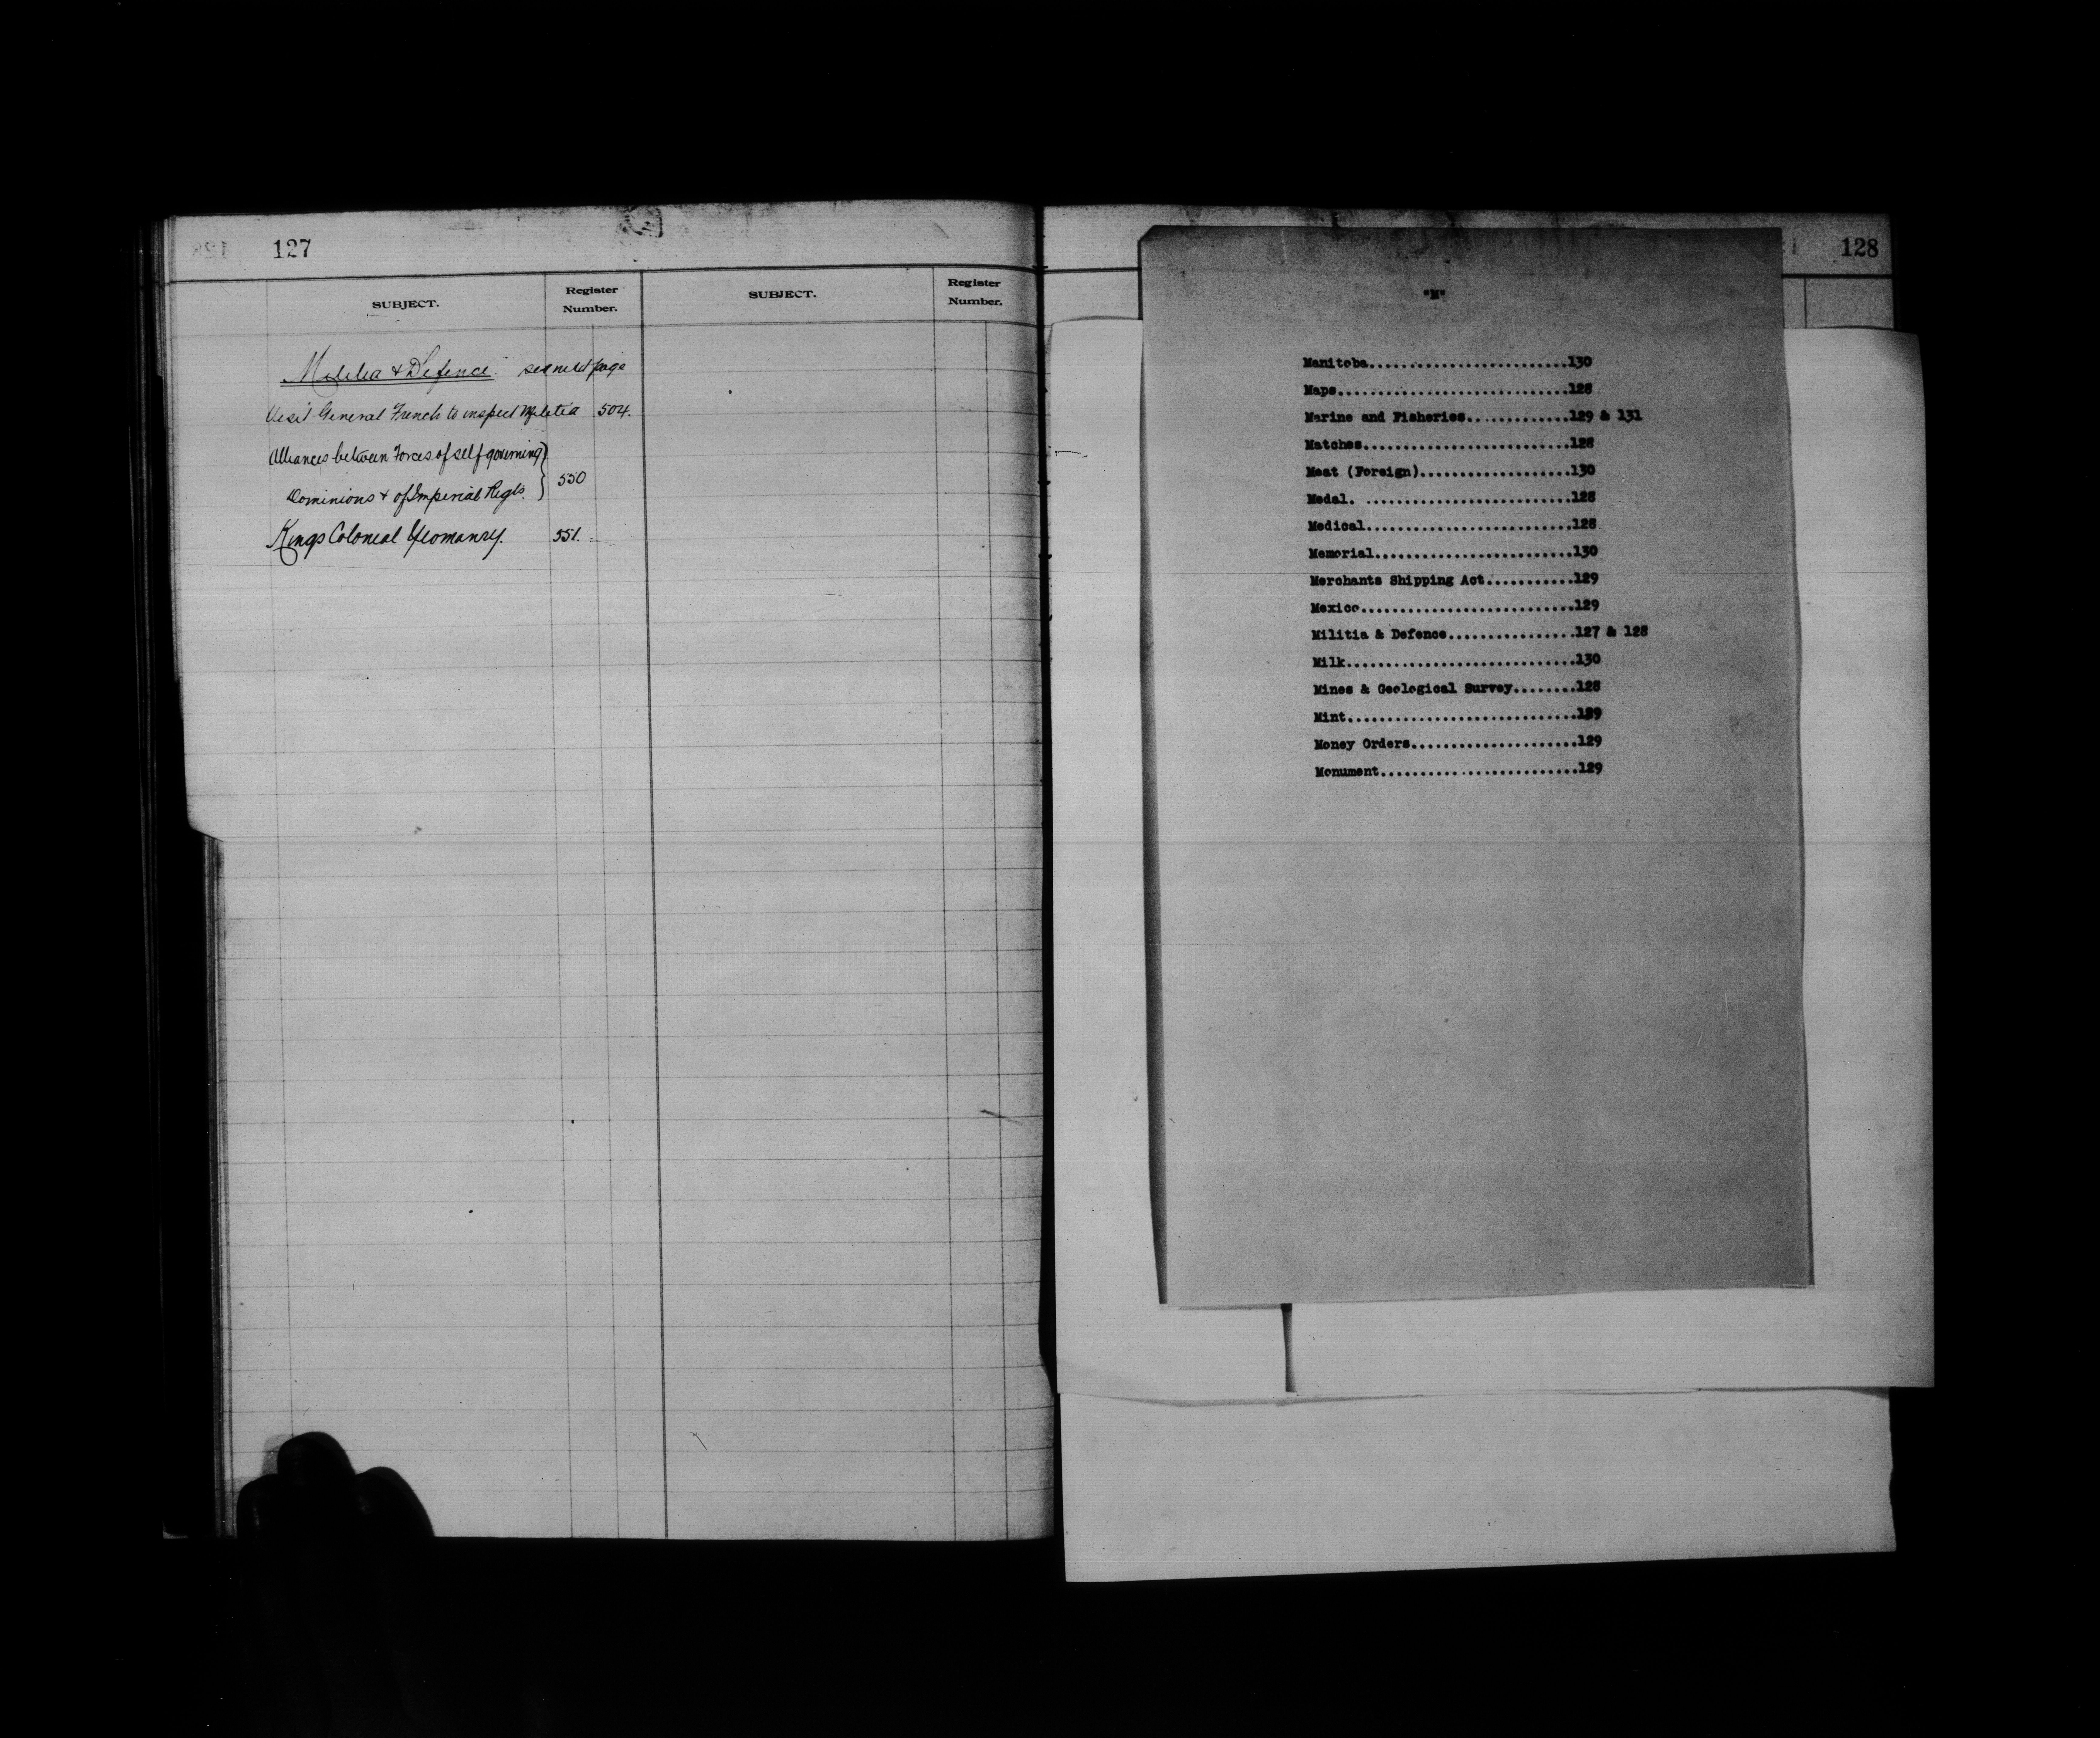 127
SUBJECT.
Register
Number.
SUBJECT.
Register
Number.
Militia & Defence. see next page
Visit General French to inspect Militia 504.
Alliances between Forces of self governing
Dominions & of Imperial Regts. } 550
Kings Colonial Yeomanry. 551.
128
"M"
Manitoba.........................130
Maps.............................128
Marine and Fisheries.............129 & 131
Matches..........................128
Meat (Foreign)...................130
Medal. ..........................128
Medical..........................128
Memorial.........................130
Merchants Shipping Act...........129
Mexico...........................129
Militia & Defence................127 & 128
Milk.............................130
Mines & Geological Survey........128
Mint.............................129
Money Orders.....................129
Monument.........................129